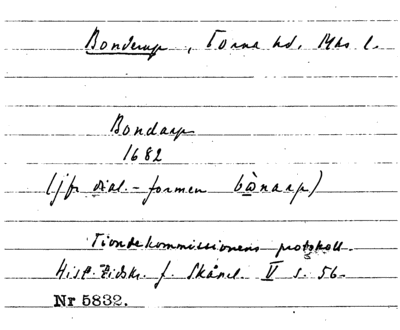 Bonderup, Torna hd. Mhs l.
Bondarp
1682
(jfr dial.-formen bònarp)
Tiondekommissionens protokoll.
Hist. Tidskr. f. Skånel. V s. 56.
Nr 5832.